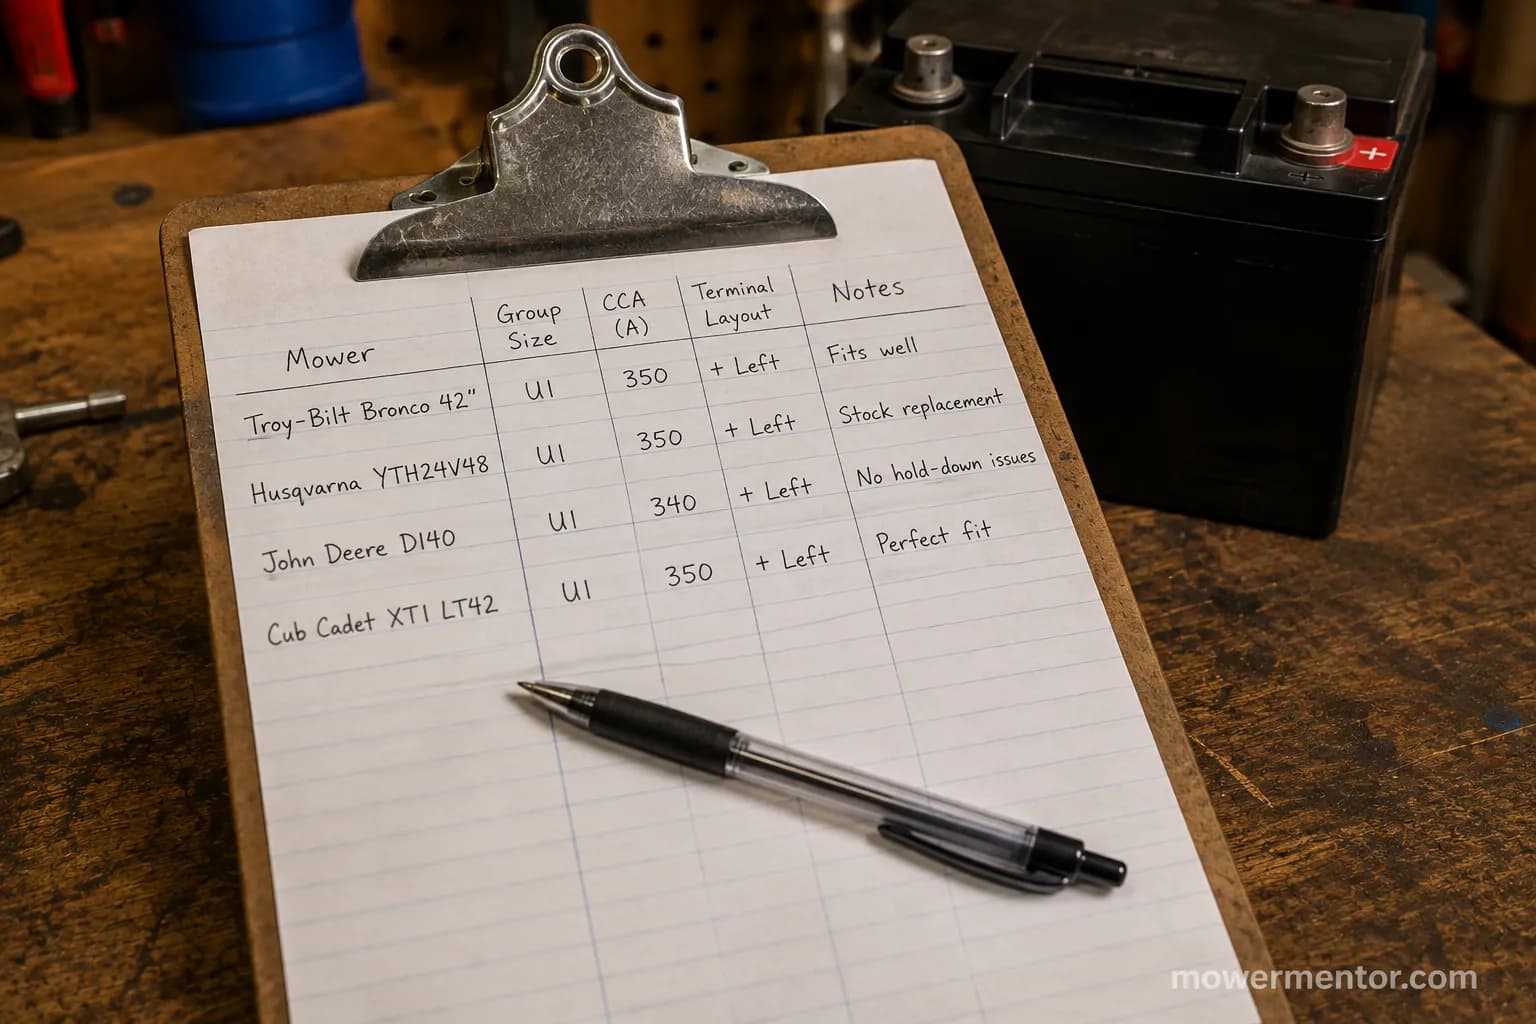 Mower Group Size CCA (A) Terminal Layout Notes
Troy-Bilt Bronco 42" U1 350 + Left Fits well
Husqvarna YTH24V48 U1 350 + Left Stock replacement
John Deere D140 U1 340 + Left No hold-down issues
Cub Cadet XT1 LT42 U1 350 + Left Perfect fit
+
+
mowermentor.com